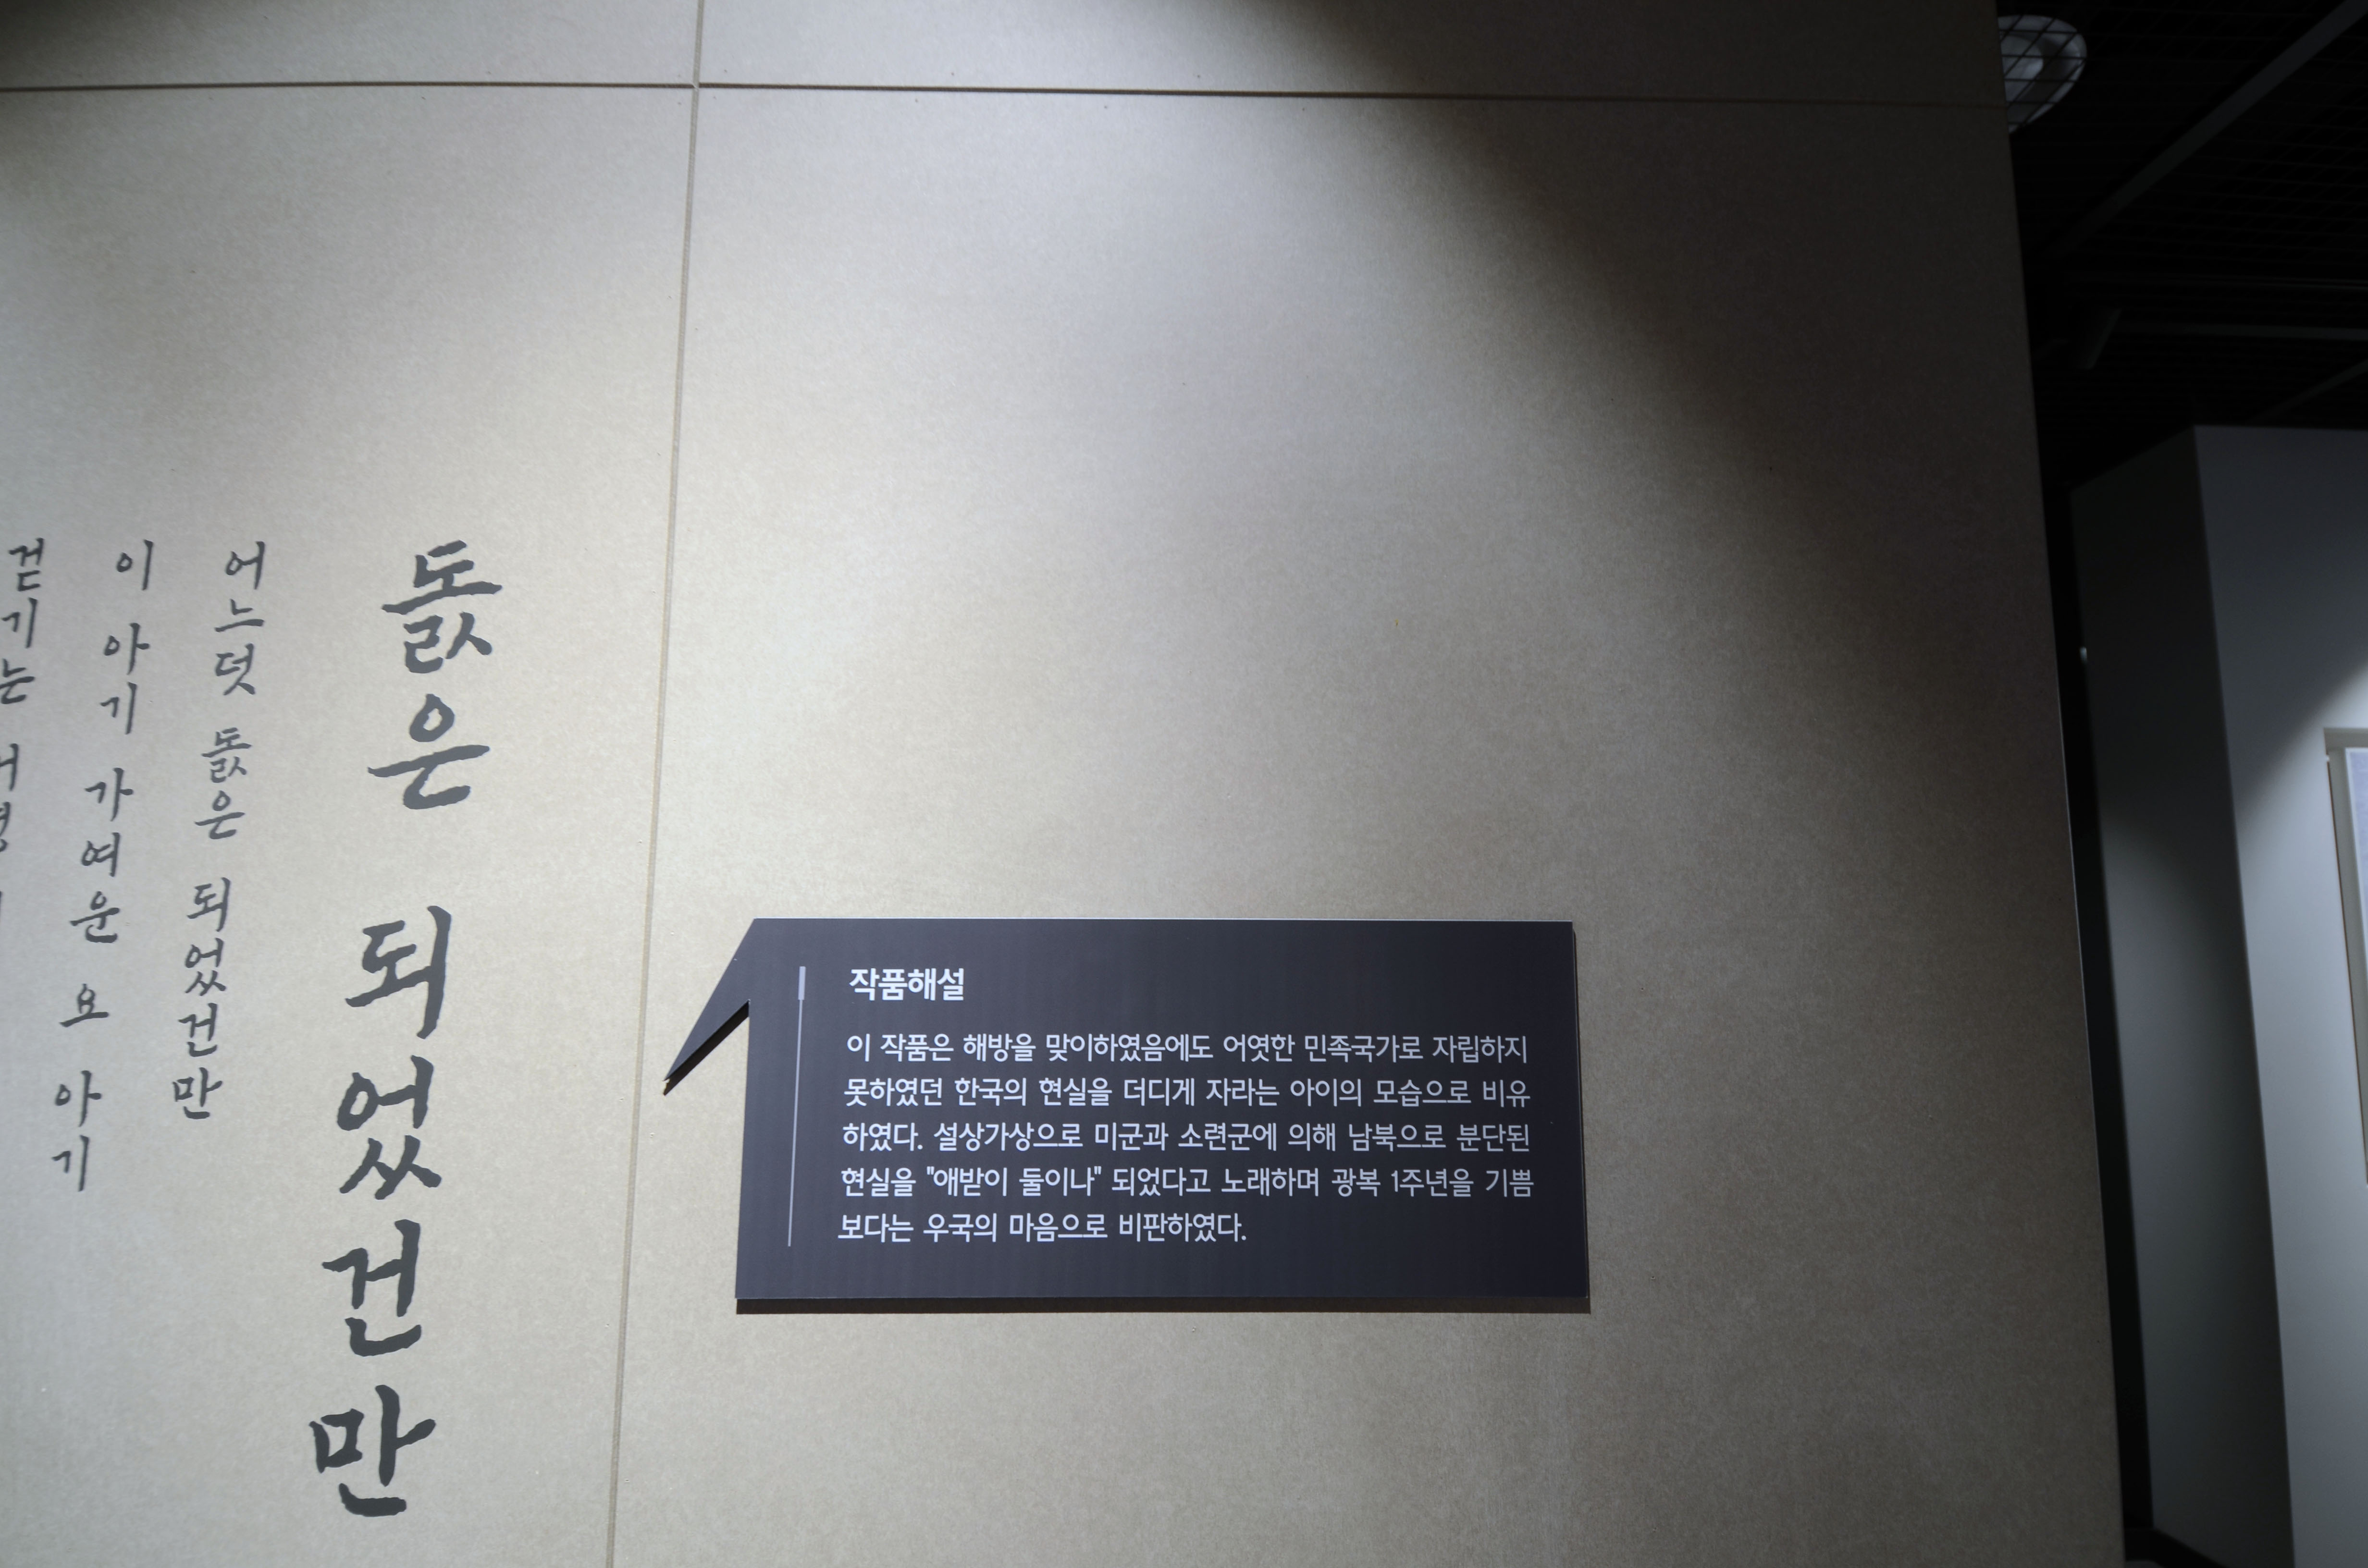 돐은 되었건만
어느덧 돐은 되었건만
이 아기 가여운 요 아기
걷기는
작품해설
이 작품은 해방을 맞이하였음에도 어엿한 민족국가로 자립하지
못하였던 한국의 현실을 더디게 자라는 아이의 모습으로 비유
하였다. 설상가상으로 미군과 소련군에 의해 남북으로 분단된
현실을 "애받이 둘이나" 되었다고 노래하며 광복 1주년을 기쁨
보다는 우국의 마음으로 비판하였다.